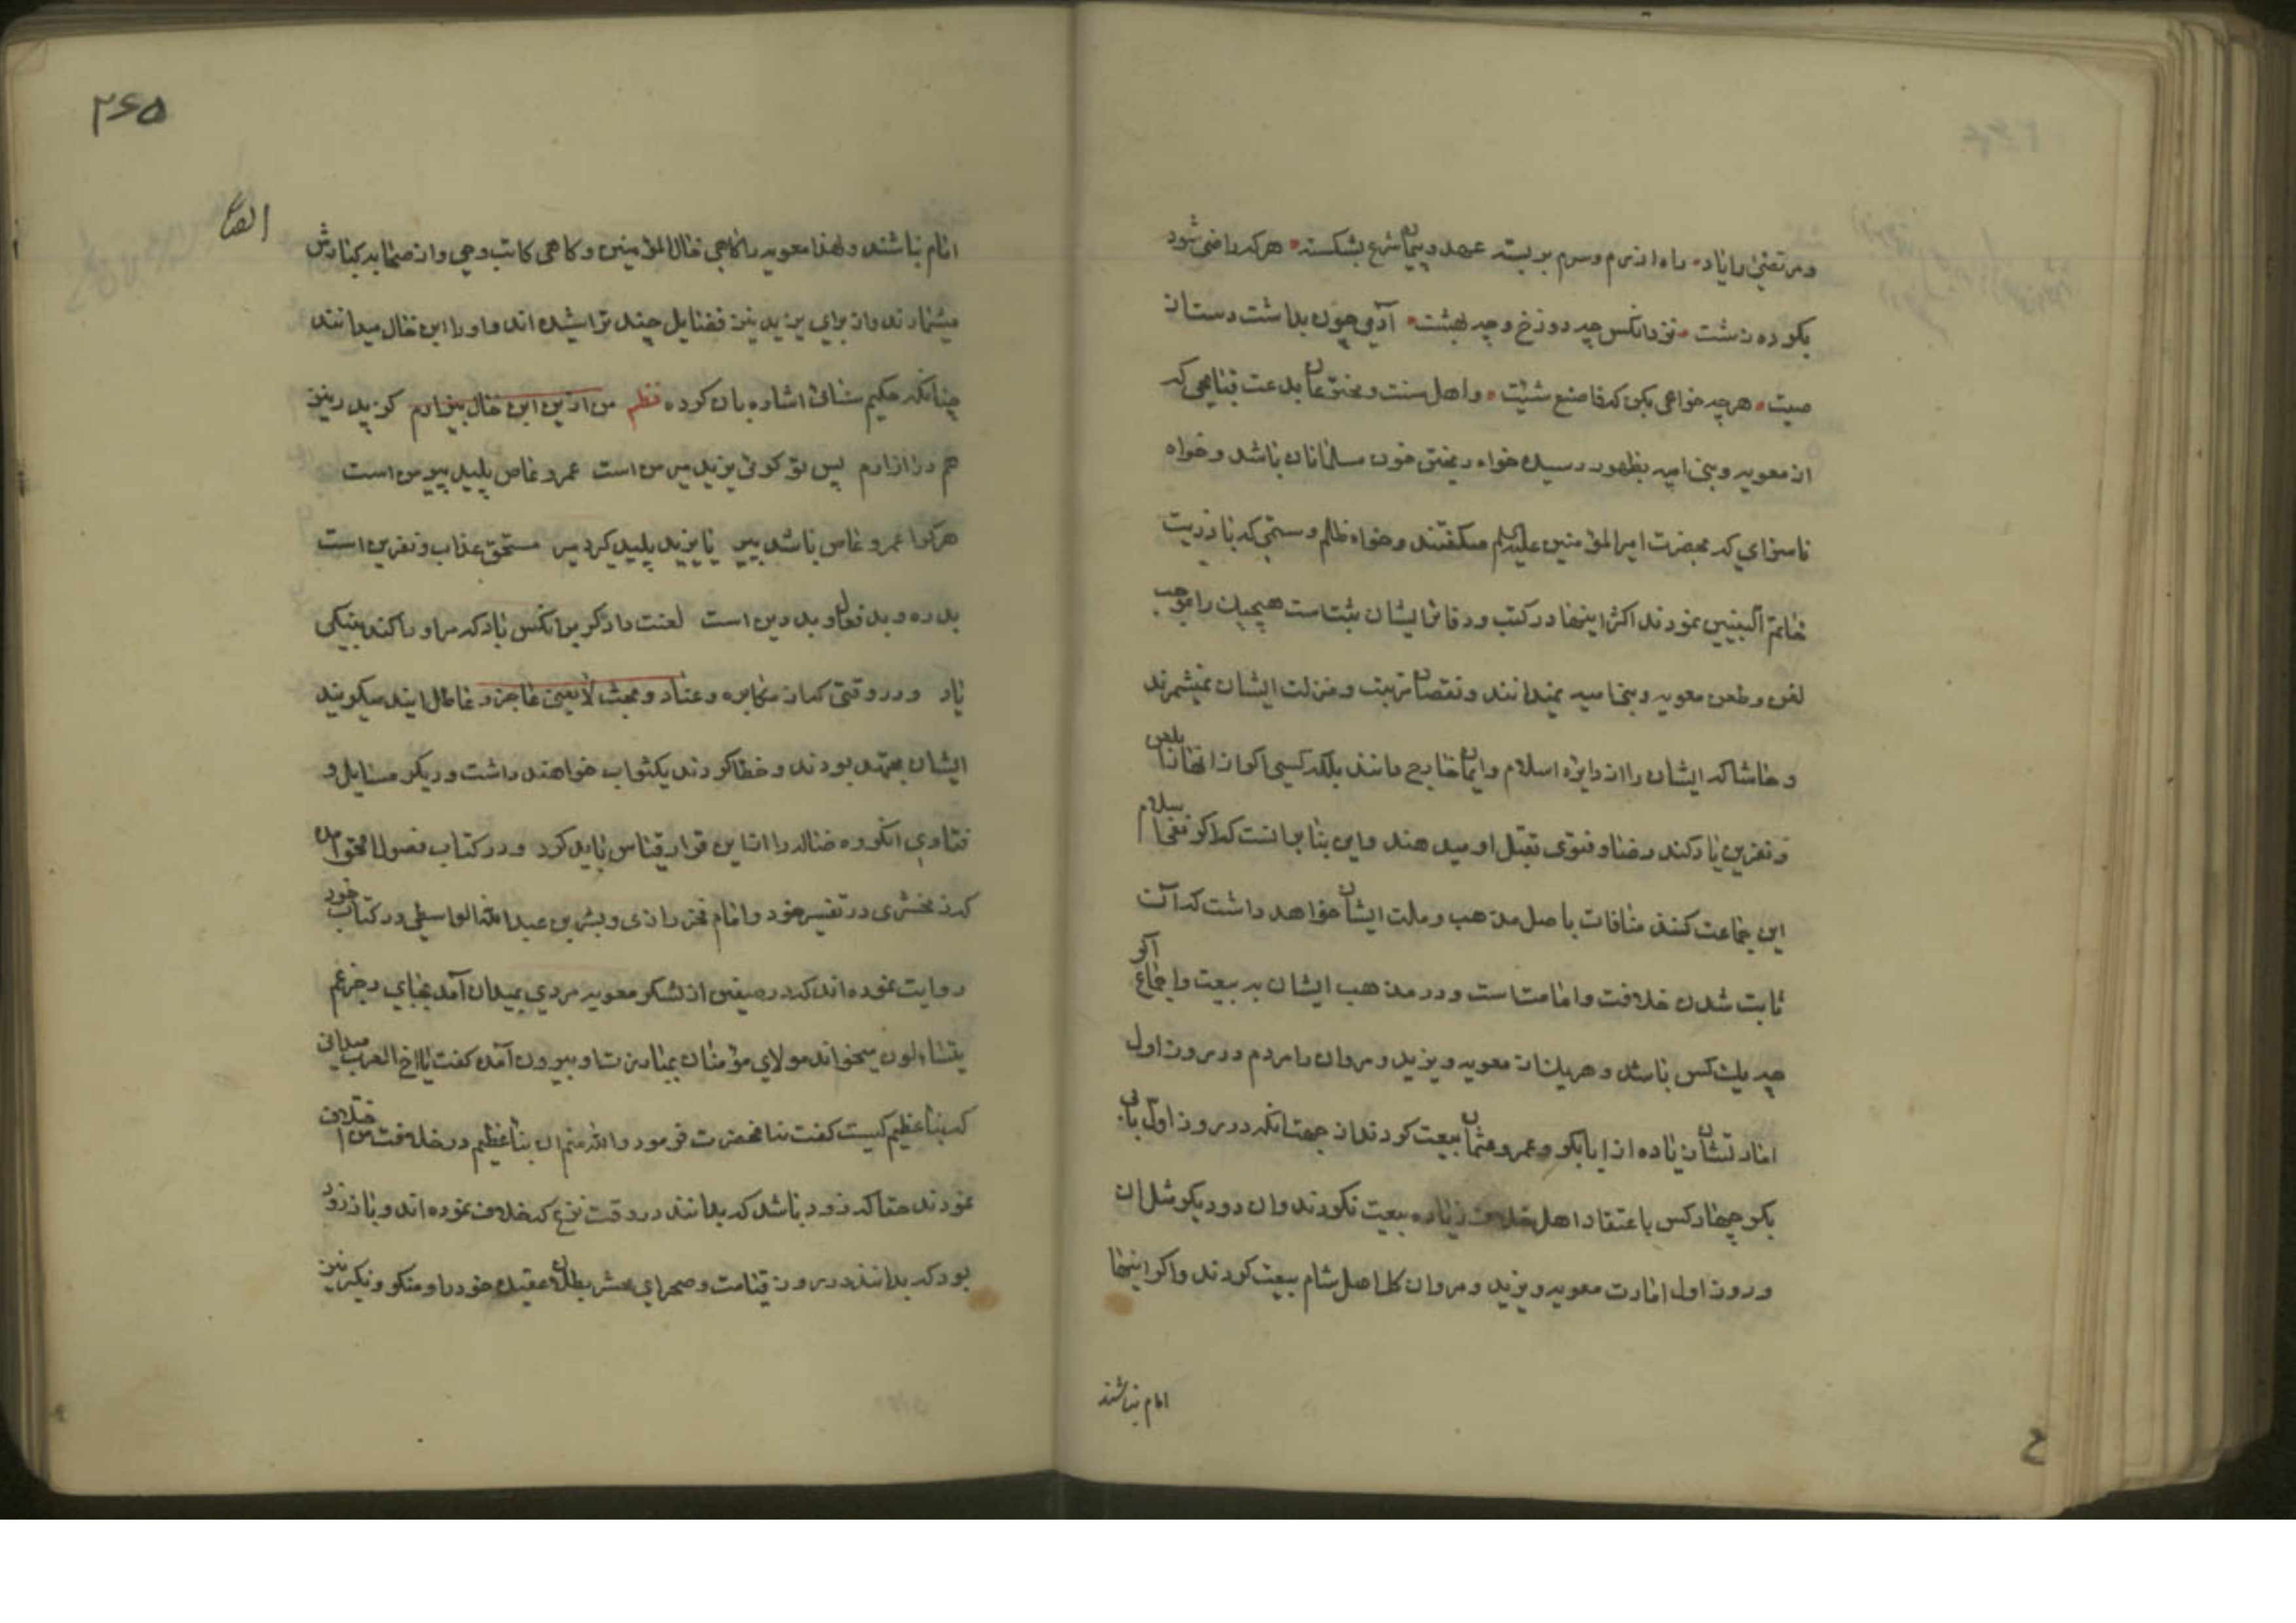 و مرتضی را یاد راه آزرم و شرم بر بسته عهد و پیمان شرع بشکسته هر که راضی شود
بکرده زشت نزد آنکس چه دوزخ و چه بهشت آدمی چون بداشت دست از
صیت هر چه خواهی بکن که فاصنع شئت و اهل سنت و مخترعان بدعت قبایحی که
از معویه و بنی امیه بظهور رسیده خواه ریختن خون مسلمانان باشد و خواه
ناسزای که بحضرت امیرالمؤمنین علیه السلم میگفتند و خواه ظلم و ستمی که با ذریت
خاتم النبیین نمودند اکثر اینها در کتب و دفاتر ایشان ثبت است هیچیک را موجب
لعن و طعن معویه و بنی امیه نمیدانند و نقصان مرتبت و منزلت ایشان نمیشمرند
و حاشا که ایشان را از دایره اسلام و ایمان خارج دانند بلکه کسی اکر از آنها را بلعن
و نفرین یاد کند رضا و فتوی بقتل او میدهند و این بنا بر آنست که اکر نفی اسلام
این جماعت کنند منافات باصل مذهب و ملت ایشان خواهد داشت که آن
ثابت شدن خلافت و امامت است و در مذهب ایشان به بیعت و اجماع اکر
چه یک کس باشد و هر یک از معویه و یزید و مروان را مردم در روز اول
امارتشان زیاده از ابابکر و عمر و عثمان بیعت کردند از جهت آنکه در روز اول بابی
بکر چهار کس باعتقاد اهل خلاف زیاده بیعت نکردند و آن دو دیکر مثل آن
و روز اول امارت معویه و یزید و مروان کل اهل شام بیعت کردند و اکر اینها
امام نباشند
۲۶۵
امام نباشند و لهذا معویه را کاهی خال المؤمنین و کاهی کاتب وحی و از صحابه کبارش
میشمارند و از برای یزید نیز فضایل چند تراشیده اند و او را ابن خال میدانند
چنانکه حکیم سنائی اشاره بآن کرده نظم من ازین ابن خال بیزارم کز پدر نیز
هم در آزارم پس تو کوئی یزید میر من است عمرو عاص پلید پیر من است
هر کرا عمرو عاص باشد پیر یا یزید پلید کردد میر مستحق عذاب و نفرین است
بد ره و بد فعال و بد دین است لعنت دادکر بر آنکس باد که مر او را کند بنیکی
یاد و در وقتی که از مکابره و عناد و مبحث لایعنی عاجز و عاطل آیند میکویند
ایشان مجتهد بودند و خطا کردند یکثواب خواهند داشت و دیکر مسایل و
فتاوی آنکروه ضاله را از این قرار قیاس باید کرد و در کتاب فصول الحق آمده
که زمخشری در تفسیر خود و امام فخر رازی و بشر بن عبدالله الواسطی در کتاب خود
روایت نموده اند که در صفین از لشکر معویه مردی بمیدان آمد بجای رجز عم
یتساءلون میخواند مولای مؤمنان بمبارزت او بیرون آمده کفت یا اخ العرب میدانی
که نبأ عظیم کیست کفت نه آنحضرت فرمود والله منم آن نبأ عظیم در خلافت من اختلاف
نمودند حقا که زود باشد که بدانند در وقت نزع که خلاف نموده اند و باز زود
بود که بدانند در روز قیامت و صحرای محشر بطلان عقیده خود را و منکر و نکیر نیز